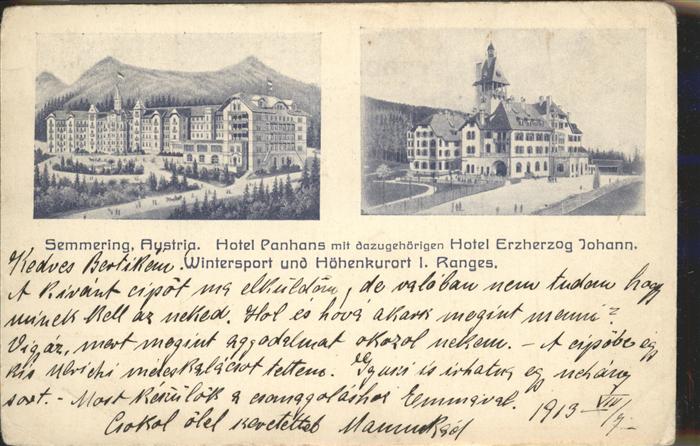 Semmering, Austria. Hotel Panhans mit dazugehörigen Hotel Erzherzog Johann.
Wintersport und Höhenkurort I. Ranges.
Kedves Bertikém!
A kivánt cipőt ma elküldöm, de valóban nem tudom hogy
minek kell az neked. Hol és hová akarsz megint menni?
Vigáz, mert megint aggodalmat okozol nekem. – A cipőbe egy
kis zürichi mézeskalácsot tettem. is irhatna egy néhány
sort. – Most készülök a csomagoláshoz Emmával. 1913 VIII/7
Csokol ölel szeretettel Mamuskád